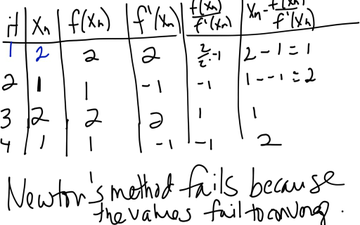 it xn f(xn) f'(xn) f(xn)/f'(xn) xn - f(xn)/f'(xn)
1 2 2 2 2/2=1 2-1=1
2 1 1 -1 -1 1--1=2
3 2 2 2 1 1
4 1 1 -1 -1 2
Newton's method fails because
the values fail to converg.